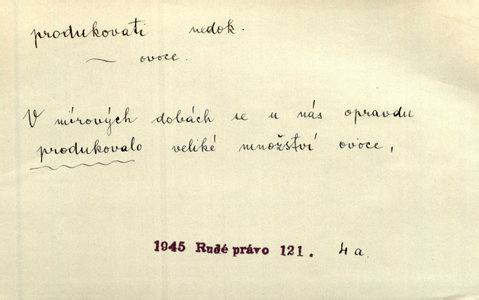 produkovati nedok.
~ ovoce.
V mírových dobách se u nás opravdu
produkovalo veliké množství ovoce,
1945 Rudé právo 121. 4a.